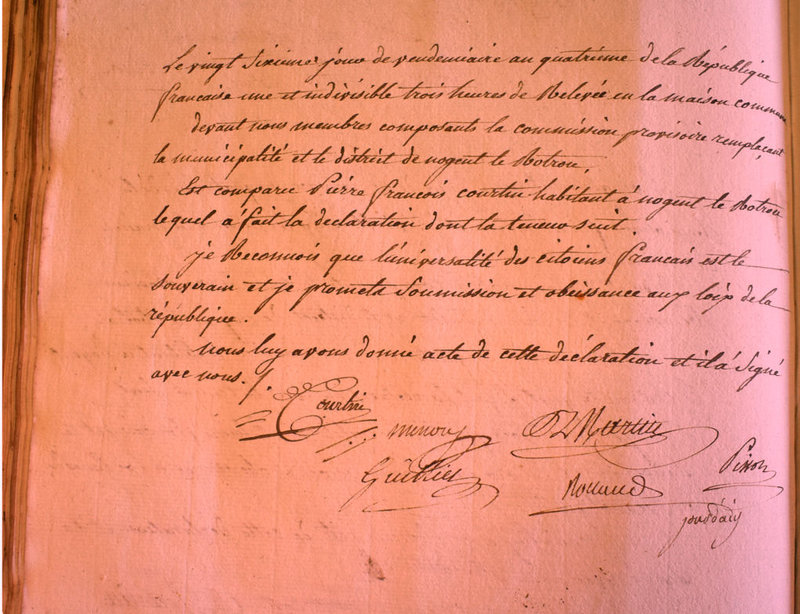 Le vingt sixieme jour de vendemiaire an quatrieme de la République
francaise une et indivisible trois heures de Relevée en la maison commune
devant nous membres composants la commission provisoire remplaçant
la municipalité et le district de nogent le Rotrou,
Est comparu Pierre francois courtin habitant à nogent le Rotrou
lequel a fait la declaration dont la teneur suit.
je Reconnois que l'universalité des citoiens francais est le
souverain et je promets soumission et obeissance aux loix de la
république.
nous luy avons donné acte de cette déclaration et il a signé
avec nous. /.
Courtin
Martin
Rouaud
jourdain